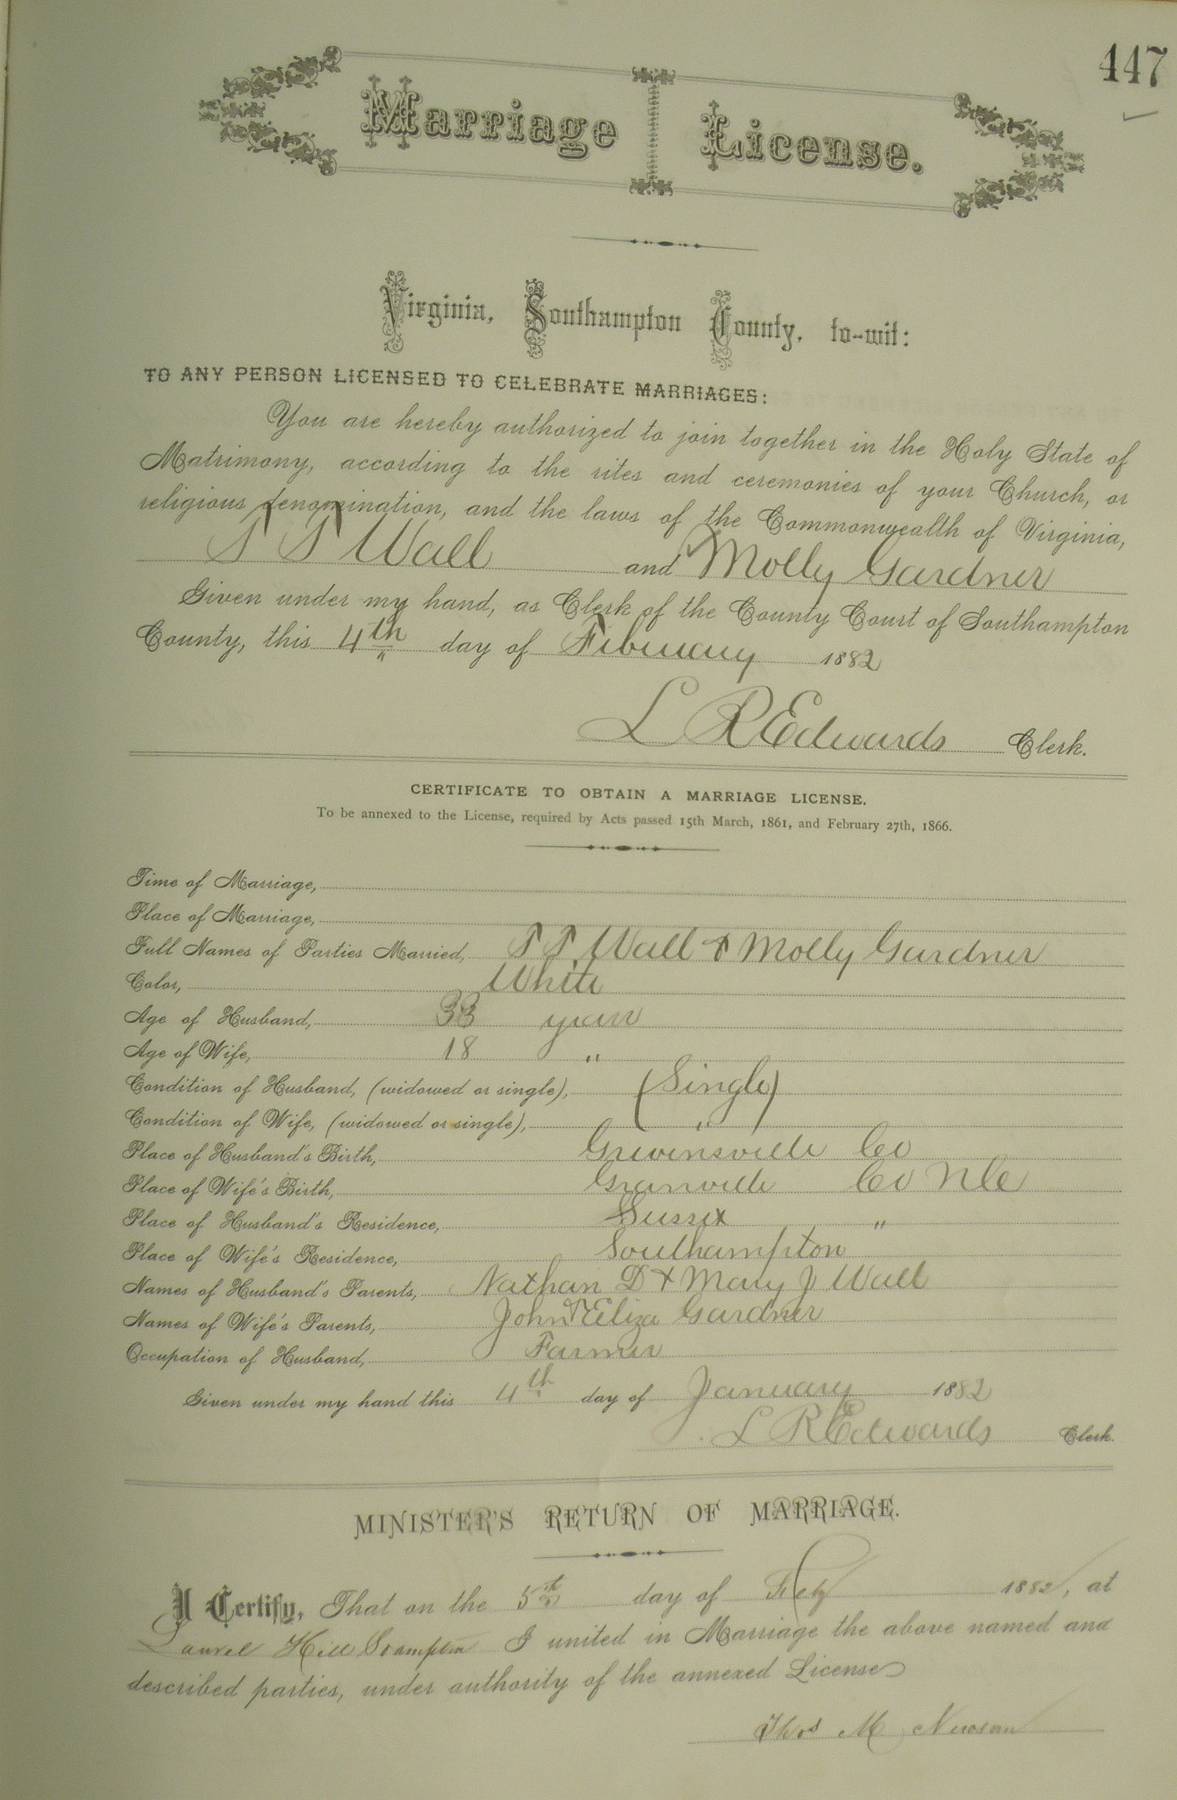 447
Marriage License.
Virginia, Southampton County, to-wit:
TO ANY PERSON LICENSED TO CELEBRATE MARRIAGES:
You are hereby authorized to join together in the Holy State of
Matrimony, according to the rites and ceremonies of your Church, or
religious denomination, and the laws of the Commonwealth of Virginia,
Wall and Molly Gardner
Given under my hand, as Clerk of the County Court of Southampton
County, this 4th day of February 1882
L R Edwards Clerk.
CERTIFICATE TO OBTAIN A MARRIAGE LICENSE.
To be annexed to the License, required by Acts passed 15th March, 1861, and February 27th, 1866.
Time of Marriage,
Place of Marriage,
Full Names of Parties Married, Wall & Molly Gardner
Color, White
Age of Husband, 33 years
Age of Wife, 18 "
Condition of Husband, (widowed or single), (Single)
Condition of Wife, (widowed or single), "
Place of Husband's Birth, Greensville Co
Place of Wife's Birth, Granville Co N Ca
Place of Husband's Residence, Sussex "
Place of Wife's Residence, Southampton
Names of Husband's Parents, Nathan D & Mary J Wall
Names of Wife's Parents, John & Eliza Gardner
Occupation of Husband, Farmer
Given under my hand this 4th day of January 1882
L R Edwards Clerk.
MINISTER'S RETURN OF MARRIAGE.
I Certify, That on the 5th day of Feby 1882, at
Laurel Hill I united in Marriage the above named and
described parties, under authority of the annexed License
Thos M Newsom